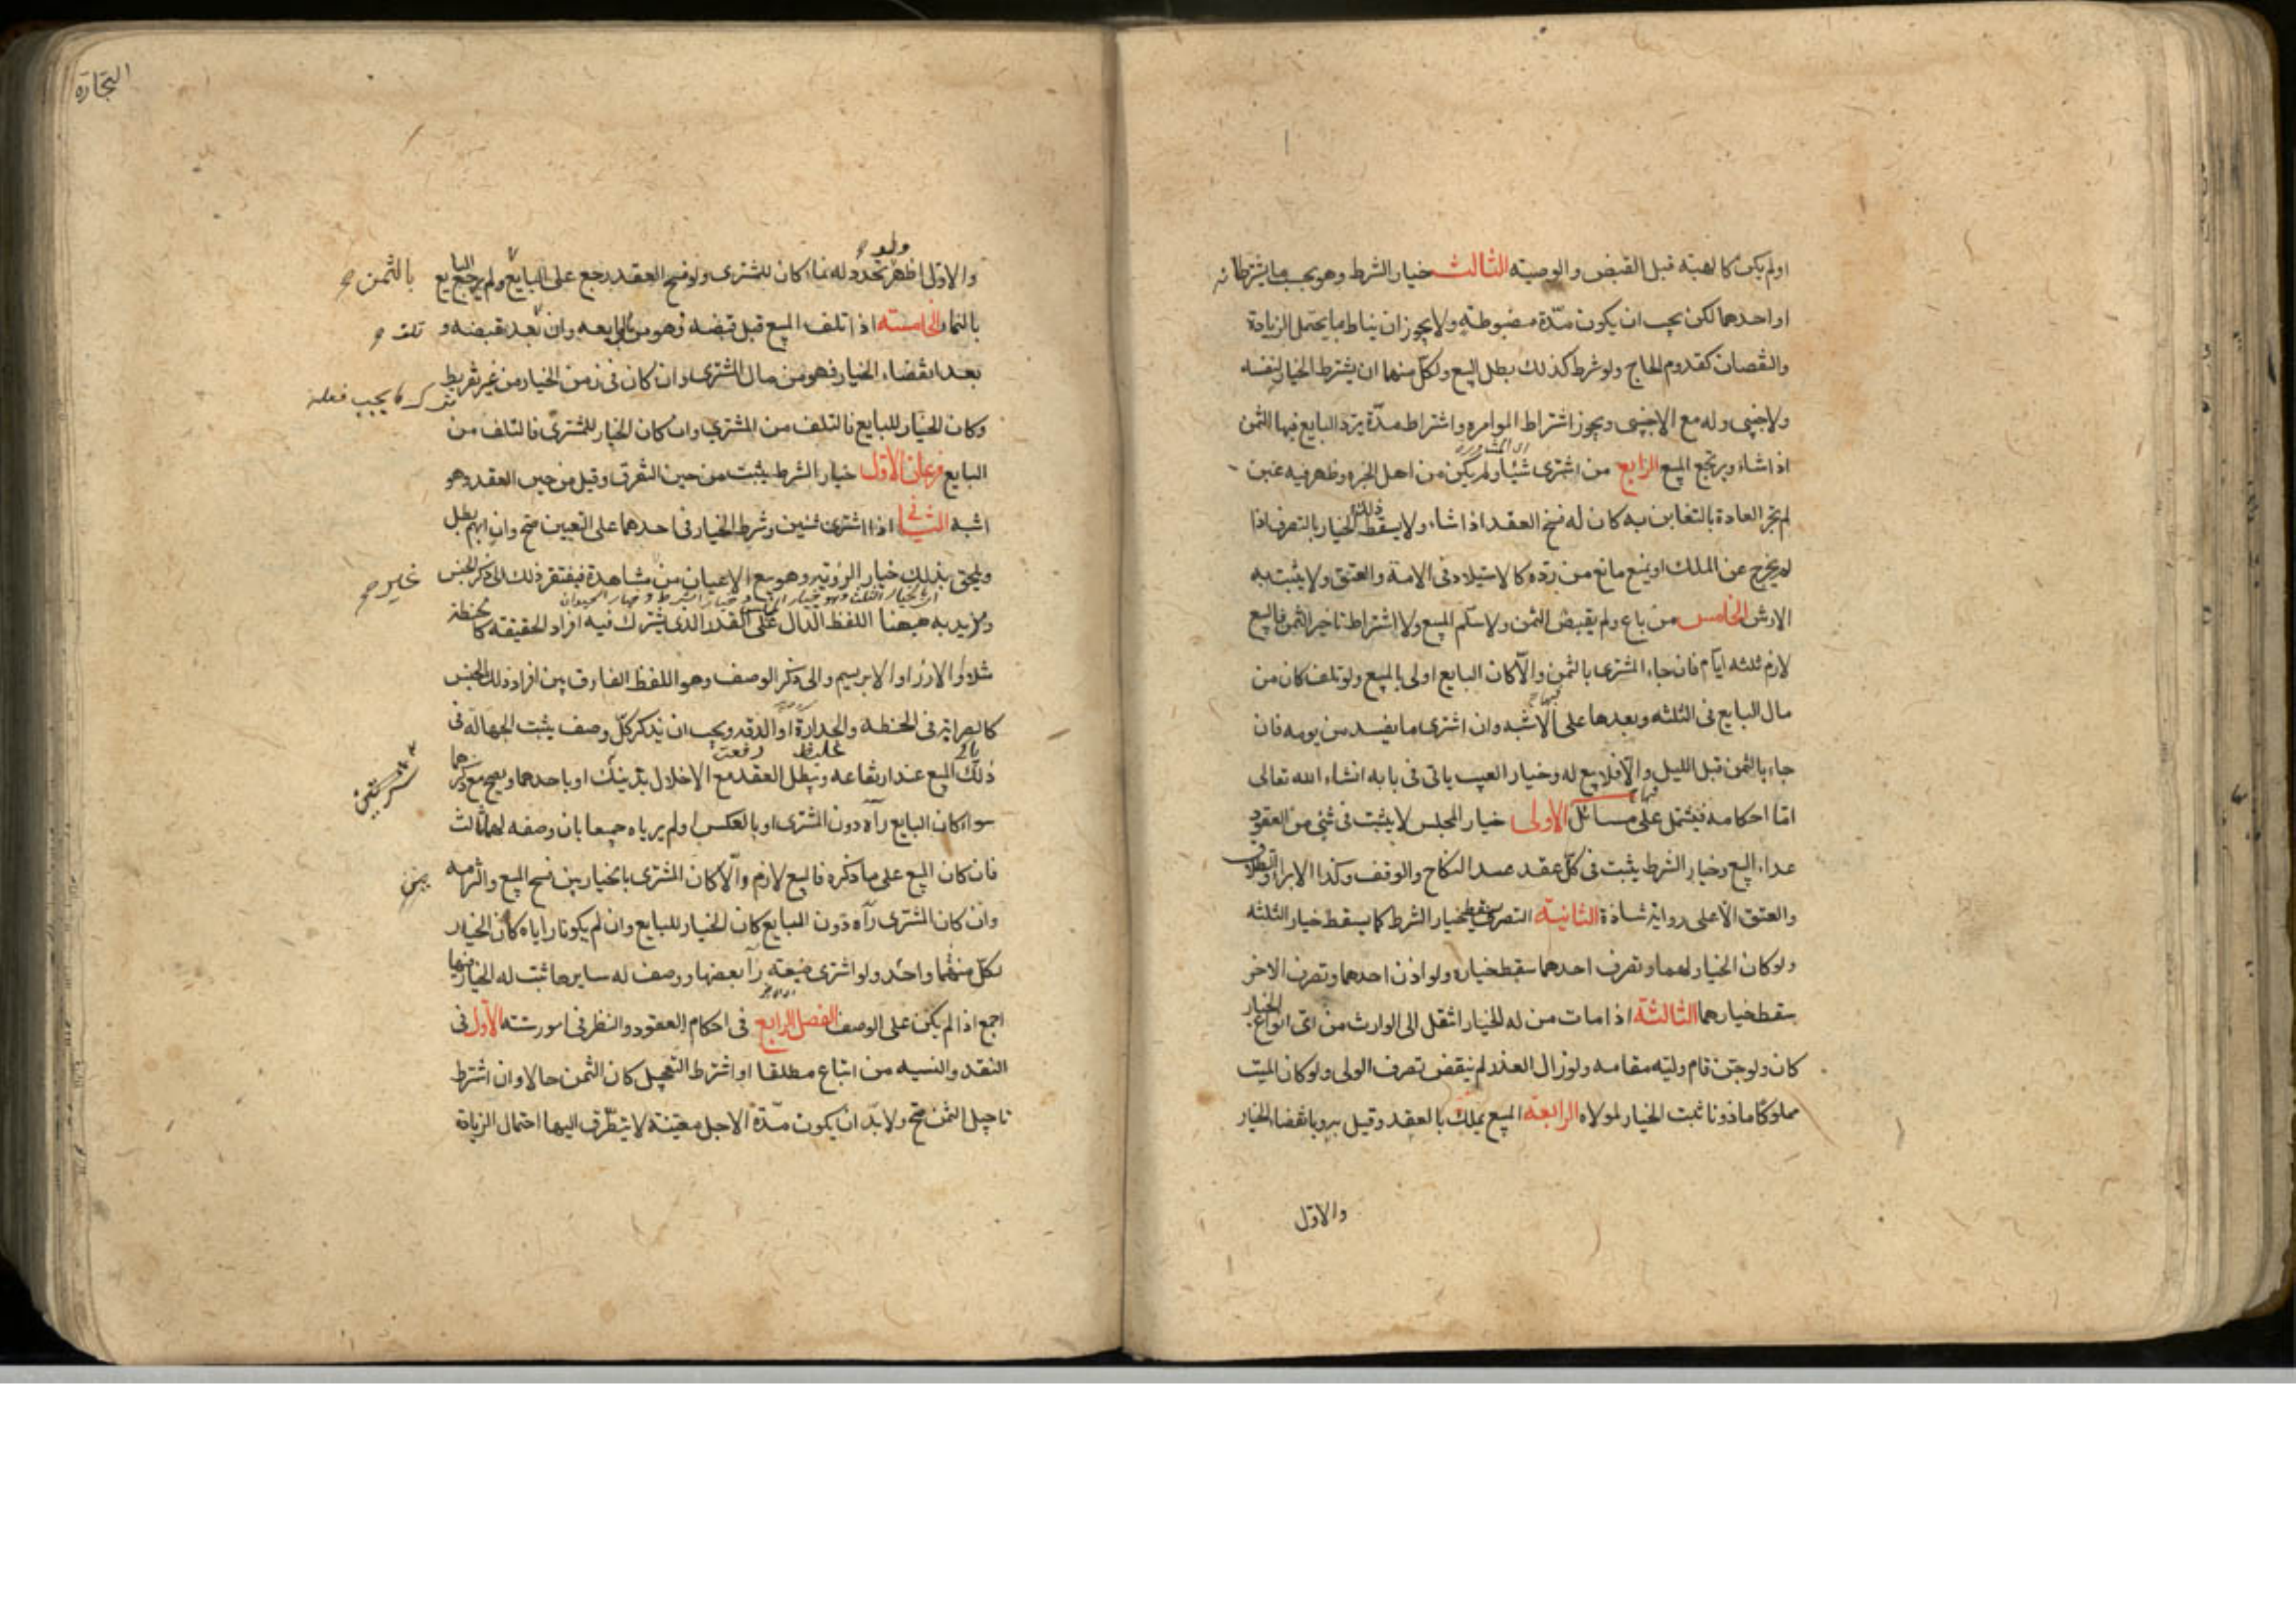 او لم يكن كالهبة قبل القبض والوصيته الثالث خيار الشرط وهو بحسب ما يشترطانه
او احدهما لكن يجب ان يكون مدّة مضبوطة ولا يجوز ان يناط بما يحتمل الزيادة
والنقصان كقدوم الحاج ولو شرط كذلك بطل البيع ولكلّ منهما ان يشترط الخيار لنفسه
ولاجنبى وله مع الاجنبى ويجوز اشتراط الموامره واشتراط مدّة يردّ البايع فيها الثمن
اى المشاورة
اذا شاء ويرتجع المبيع الرابع من اشترى شيئا ولم يكن من اهل الخبره وظهر فيه غبن
لم تجر العادة بالتغابن به كان له فسخ العقد اذا شاء ولا يسقط ذلك الخيار بالتصرف اذا
لم يخرج عن الملك او يمنع مانع من ردّه كالاستيلاد فى الامة والعتق ولا يثبت به
الارش الخامس من باع ولم يقبض الثمن ولا سلّم المبيع ولا اشتراط تاخير الثمن فالبيع
لازم ثلثه ايّام فان جاء المشترى بالثمن والّا كان البايع اولى بالمبيع ولو تلف كان من
مال البايع فى الثلثه وبعدها على الاشبه وان اشترى ما يفسد من يومه فان
جاء بالثمن قبل الليل والّا فلا بيع له وخيار العيب ياتى فى بابه انشاء الله تعالى
امّا احكامه فيشتمل على مسائل الاولى خيار المجلس لا يثبت فى شئ من العقود
عداء البيع وخيار الشرط يثبت فى كلّ عقد عدا النكاح والوقف وكذا الابراء والطلاق
والعتق الّا على رواية شاذة الثانية التصرف يسقط خيار الشرط كما يسقط خيار الثلثه
ولو كان الخيار لهما وتصرف احدهما سقط خياره ولو اذن احدهما وتصرف الاخر
سقط خيارهما الثالثة اذا مات من له الخيار انتقل الى الوارث من اى انواع الخيار
كان ولو جنّ قام وليّه مقامه ولو زال العذر لم ينقض تصرف الولى ولو كان الميت
مملوكا ماذونا ثبت الخيار لمولاه الرابعة المبيع يملك بالعقد وقيل به وبانقضاء الخيار
والاوّل
التجارة
والاوّل اظهر ولو تجدد له نماء كان للمشترى ولو فسخ العقد رجع على البايع بالثمن ولم يرجع البايع
بالنماء الخامسة اذا تلف المبيع قبل قبضه فهو من مال بايعه وان تلف بعد قبضه و
بعد انقضاء الخيار فهو من مال المشترى وان كان فى زمن الخيار من غير تفريط
وكان الخيار للبايع فالتلف من المشترى وان كان الخيار للمشترى فالتلف من
البايع فرعان الاوّل خيار الشرط يثبت من حين التفرق وقيل من حين العقد وهو
اشبه الثانى اذا اشترى شيئين وشرط الخيار فى احدهما على التعيين صح وان ابهم بطل
ويلحق بذلك خيار الرؤية وهو بيع الاعيان من غير مشاهدة فيفتقر ذلك الى ذكر الجنس
ونريد به هيهنا اللفظ الدال على القدر الذى يشترك فيه افراد الحقيقه كالحنطة
مثلا او الارز او الابريسم والى ذكر الوصف وهو اللفظ الفارق بين افراد ذلك الجنس
كالصرابة فى الحنطه والحدارة او الدقه ويجب ان يذكر كلّ وصف يثبت الجهالة فى
ذلك المبيع عند ارتفاعه ويبطل العقد مع الاخلال بذينك او باحدهما ويصح مع ذكرهما
سواء كان البايع رآه دون المشترى او بالعكس او لم يرياه جميعا بان وصفه لهما ثالث
فان كان المبيع على ما ذكره فالبيع لازم والّا كان المشترى بالخيار بين فسخ البيع والتزامه
وان كان المشترى رآه دون البايع كان الخيار للبايع وان لم يكونا راياه كان الخيار
لكل واحد منهما ولو اشترى ضيعة رآ بعضها ووصف له سايرها ثبت له الخيار فيها
اجمع اذا لم يكن على الوصف الفصل الرابع فى احكام العقود والنظر فى امور ستة الاوّل فى
النقد والنسيه من ابتاع مطلقا او اشترط التعجيل كان الثمن حالا وان اشترط
تاجيل الثمن صح ولا بدّ ان يكون مدّة الاجل معيّنة لا يتطرّق اليها احتمال الزيادة